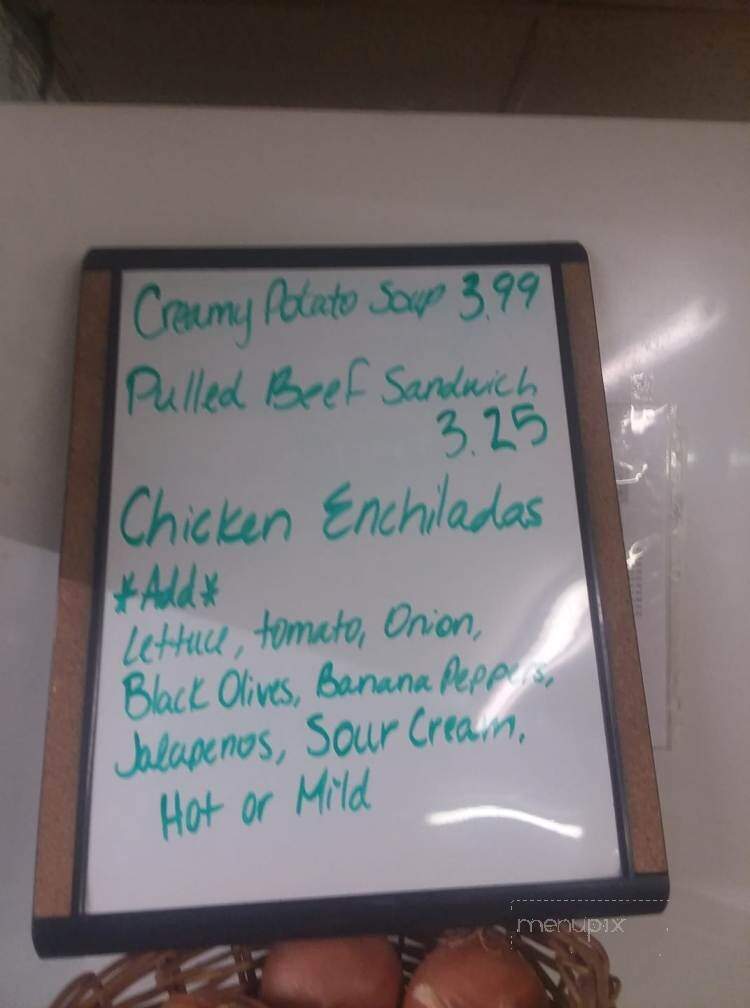 Creamy Potato Soup 3.99
Pulled Beef Sandwich
3.25
Chicken Enchiladas
*Add*
Lettuce, tomato, Onion,
Black Olives, Banana Peppers,
Jalapenos, Sour Cream,
Hot or Mild
menupix